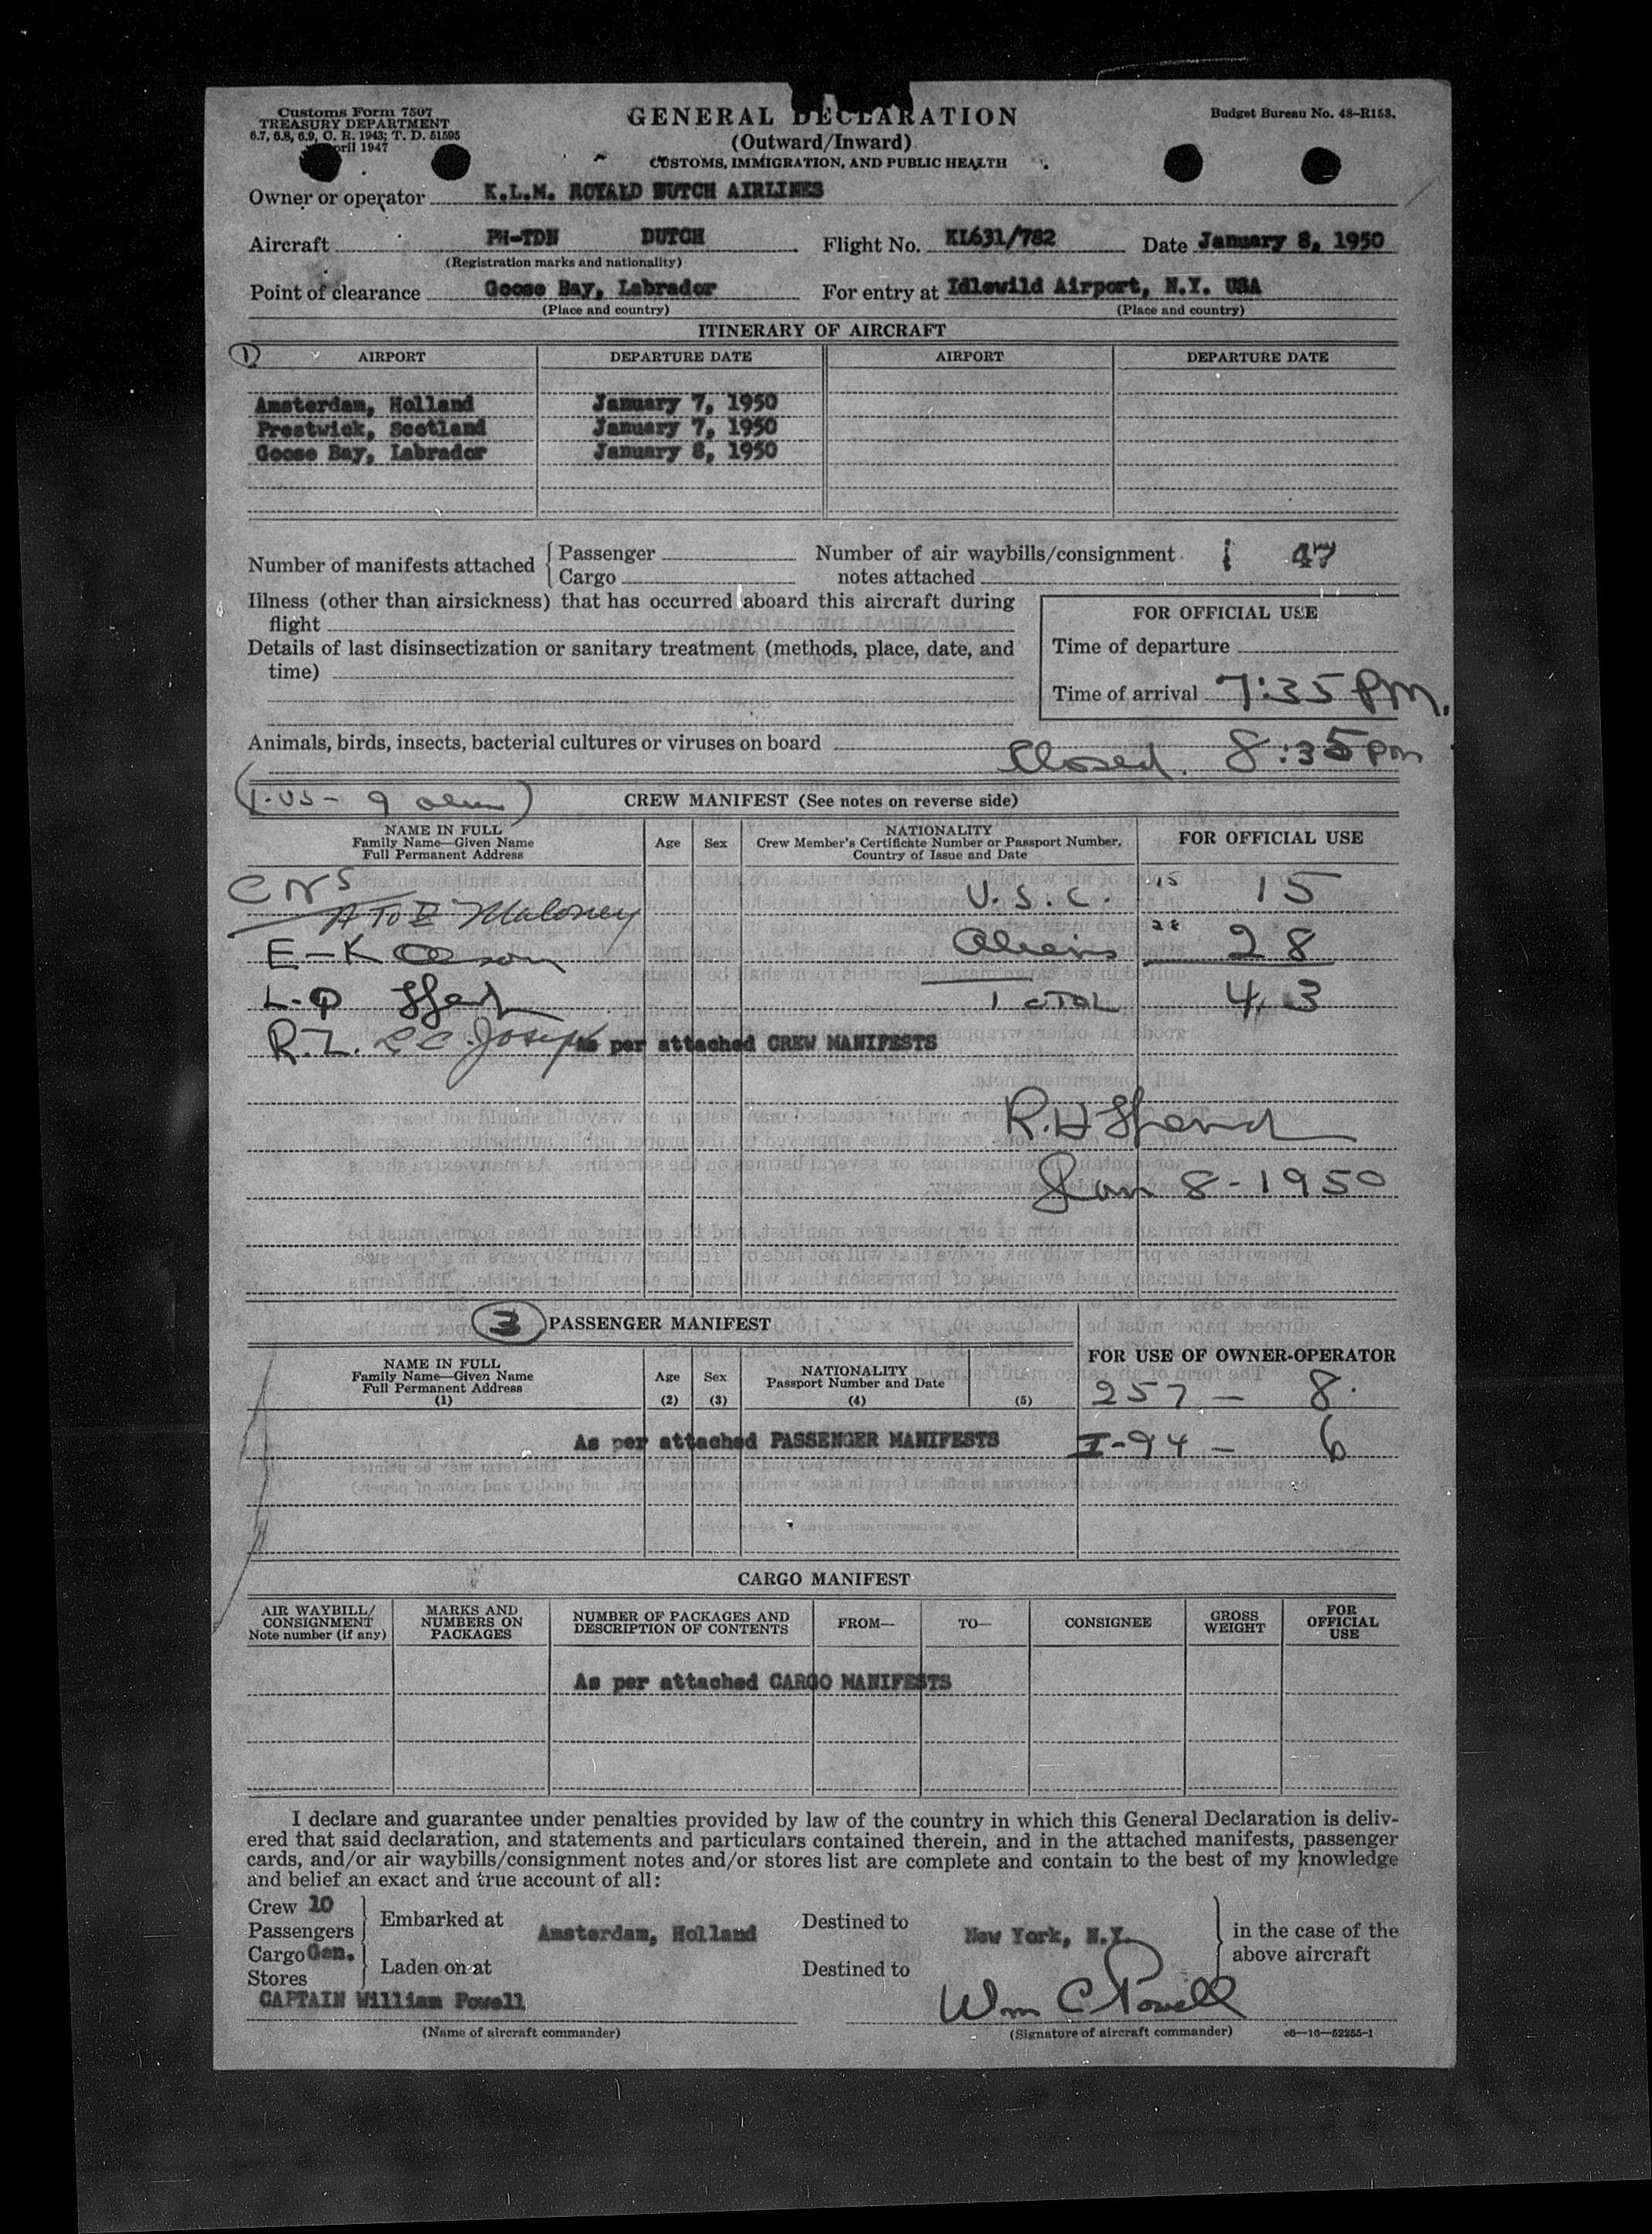 Customs Form 7507
TREASURY DEPARTMENT
6.7, 6.8, 6.9, C. R. 1943; T. D. 51595
April 1947
GENERAL DECLARATION
(Outward/Inward)
CUSTOMS, IMMIGRATION, AND PUBLIC HEALTH
Budget Bureau No. 48-R153.
Owner or operator K.L.M. ROYALD DUTCH AIRLINES
Aircraft PH-TDN DUTCH Flight No. KL631/782 Date January 8, 1950
(Registration marks and nationality)
Point of clearance Goose Bay, Labrador For entry at Idlewild Airport, N.Y. USA
(Place and country) (Place and country)
ITINERARY OF AIRCRAFT
1 AIRPORT DEPARTURE DATE AIRPORT DEPARTURE DATE
Amsterdam, Holland January 7, 1950
Prestwick, Scotland January 7, 1950
Goose Bay, Labrador January 8, 1950
Number of manifests attached { Passenger
Cargo
Number of air waybills/consignment
notes attached 47
Illness (other than airsickness) that has occurred aboard this aircraft during
flight
Details of last disinsectization or sanitary treatment (methods, place, date, and
time)
FOR OFFICIAL USE
Time of departure
Time of arrival 7:35 Pm.
Animals, birds, insects, bacterial cultures or viruses on board
Closed. 8:35 pm
(1-US- 9 alien)
CREW MANIFEST (See notes on reverse side)
NAME IN FULL
Family Name—Given Name
Full Permanent Address
Age Sex
NATIONALITY
Crew Member's Certificate Number or Passport Number,
Country of Issue and Date
FOR OFFICIAL USE
U.S.C. 15 15
A To D Maloney
E-K Aliens 28 28
L-Q TOTAL 43
R.Z. Joseph As per attached CREW MANIFESTS
Jan 8-1950
3 PASSENGER MANIFEST
NAME IN FULL
Family Name—Given Name
Full Permanent Address
(1)
Age
(2)
Sex
(3)
NATIONALITY
Passport Number and Date
(4)
(5)
FOR USE OF OWNER-OPERATOR
257 - 8
As per attached PASSENGER MANIFESTS I-94 - 6
CARGO MANIFEST
AIR WAYBILL/
CONSIGNMENT
Note number (if any)
MARKS AND
NUMBERS ON
PACKAGES
NUMBER OF PACKAGES AND
DESCRIPTION OF CONTENTS
FROM—
TO—
CONSIGNEE
GROSS
WEIGHT
FOR
OFFICIAL
USE
As per attached CARGO MANIFESTS
I declare and guarantee under penalties provided by law of the country in which this General Declaration is deliv-
ered that said declaration, and statements and particulars contained therein, and in the attached manifests, passenger
cards, and/or air waybills/consignment notes and/or stores list are complete and contain to the best of my knowledge
and belief an exact and true account of all:
Crew 10
Passengers
Embarked at Amsterdam, Holland Destined to New York, N.Y.
Cargo Gen.
Stores
Laden on at Destined to
in the case of the
above aircraft
CAPTAIN William Powell Wm C Powell
(Name of aircraft commander) (Signature of aircraft commander) c6—16—52255-1